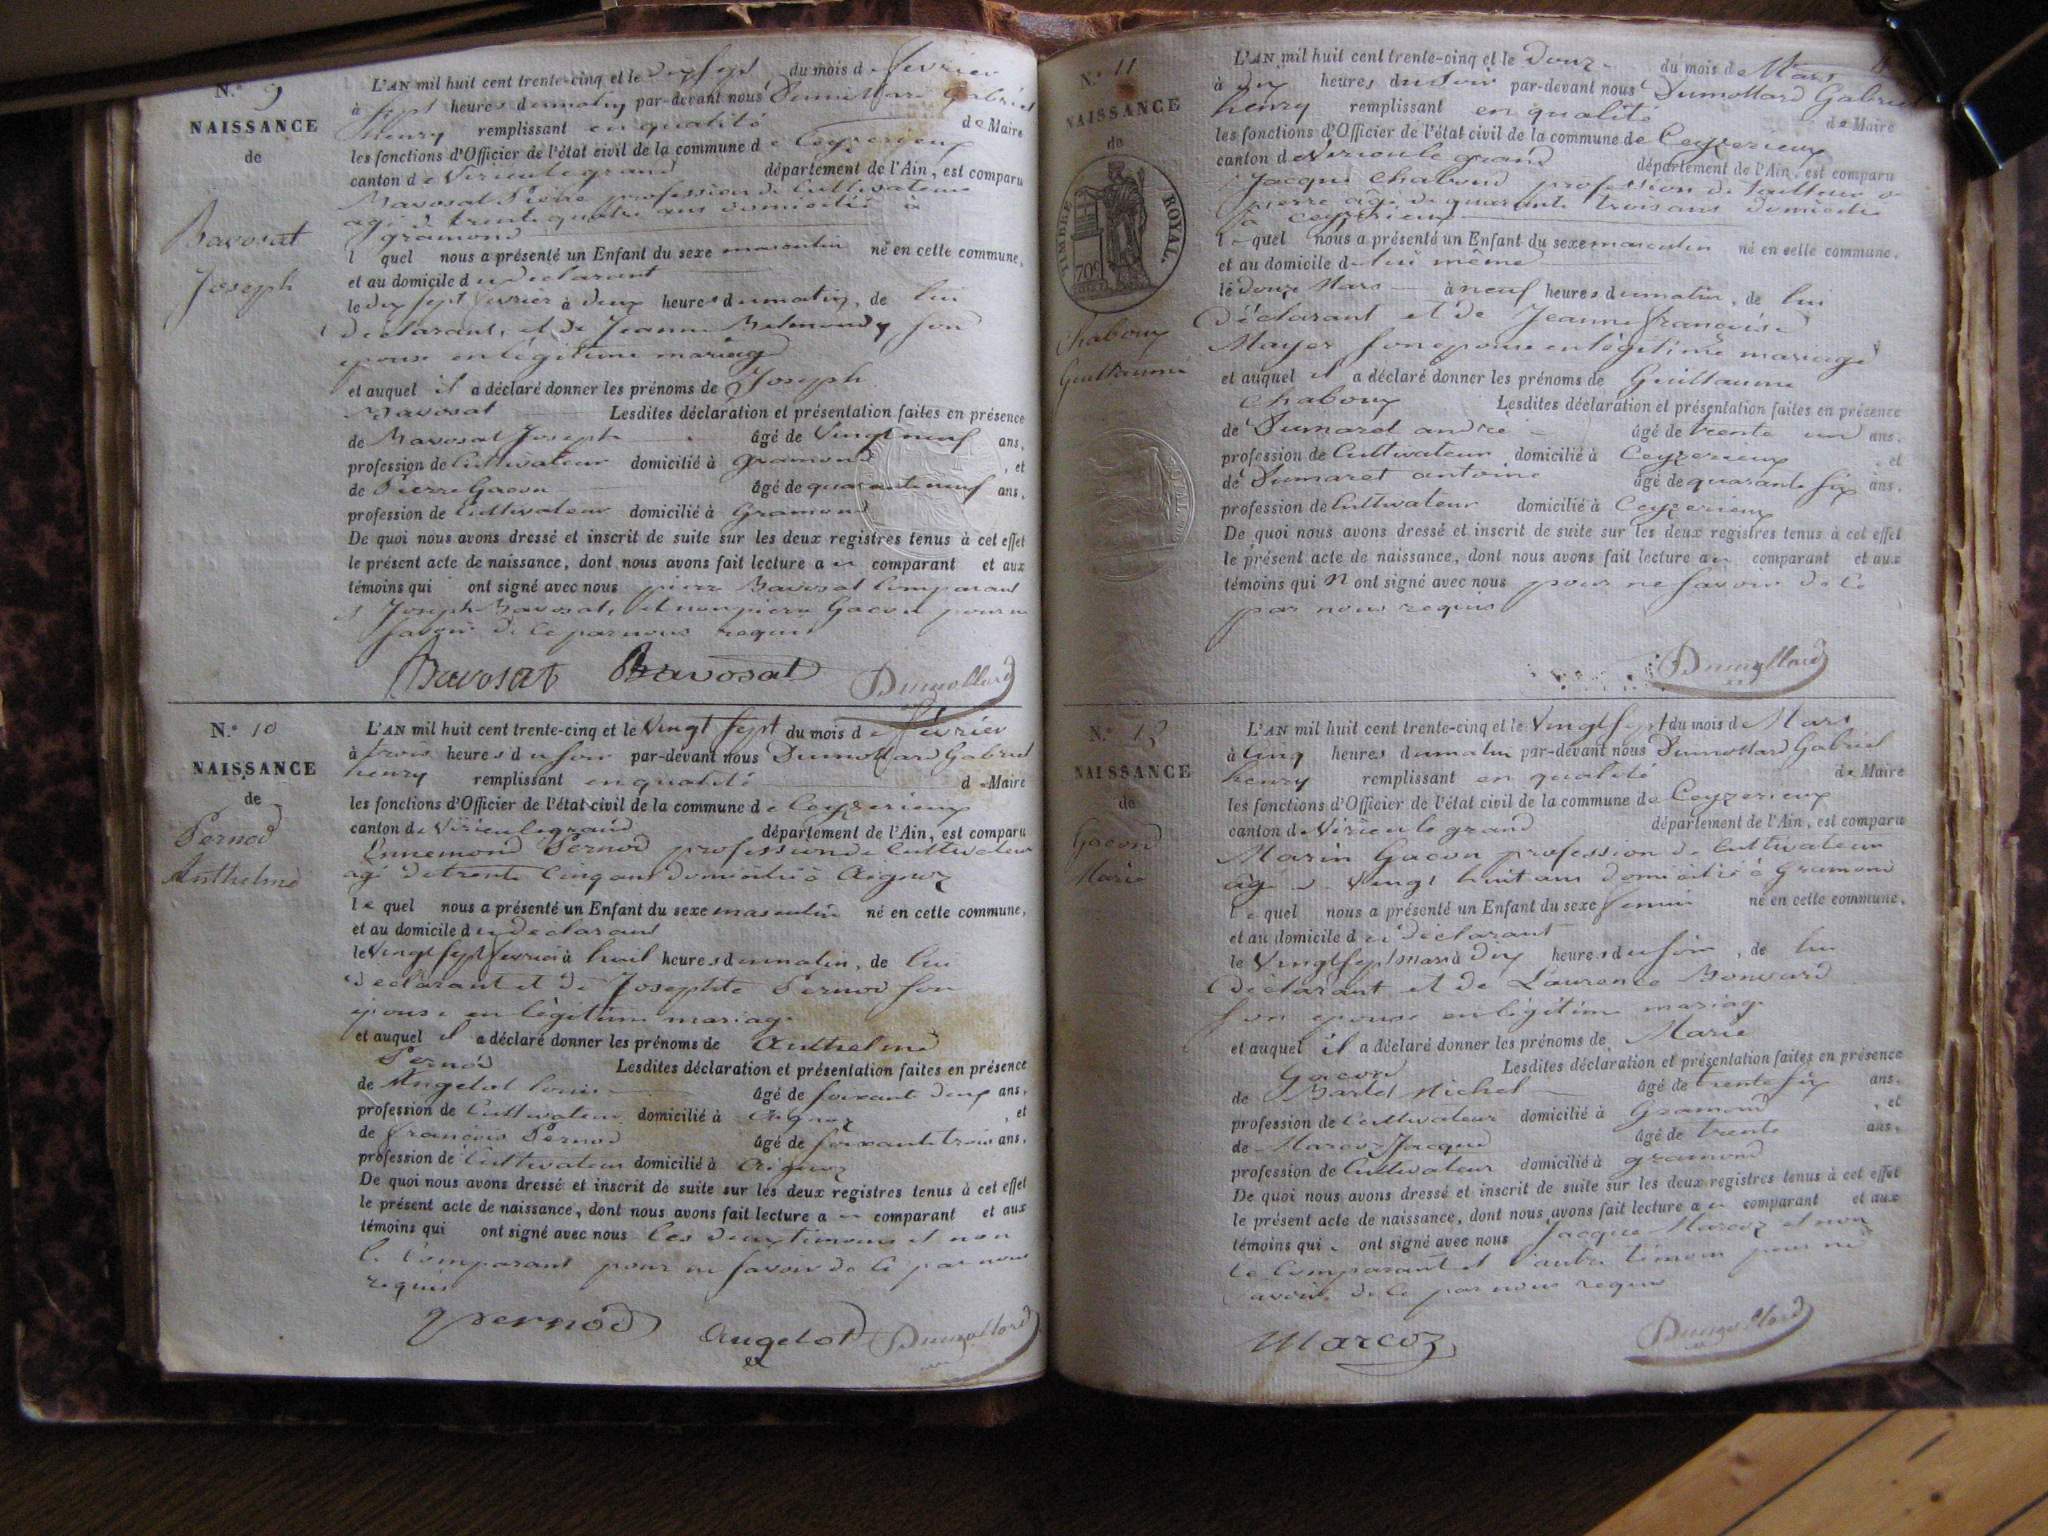 N.° 9
NAISSANCE
de
Bavosat
Joseph
L'AN mil huit cent trente-cinq et le dix sept du mois d e fevrier
à sept heures du matin par-devant nous Dumollard Gabriel
henry remplissant en qualité de Maire
les fonctions d'Officier de l'état civil de la commune d e Ceyzerieux
canton de Virieu le grand département de l'Ain, est comparu
Bavosat Pierre profession de Cultivateur
agé de trente quatre ans domicilié à
gramond
l quel nous a présenté un Enfant du sexe masculin né en cette commune,
et au domicile du declarant
le dix sept fevrier à deux heures du matin, de lui
declarant, et de Jeanne son
epouse en légitime mariage
et auquel il a déclaré donner les prénoms de Joseph
Bavosat Lesdites déclaration et présentation faites en présence
de Bavosat Joseph âgé de Vingt neuf ans,
profession de Cultivateur domicilié à gramond , et
de Pierre Gacon âgé de quarante neuf ans,
profession de Cultivateur domicilié à Gramond
De quoi nous avons dressé et inscrit de suite sur les deux registres tenus à cet effet
le présent acte de naissance, dont nous avons fait lecture au comparant et aux
témoins qui ont signé avec nous pierre Bavosat Comparant
Joseph Bavosat, et non pierre Gacon pour ne
savoir de ce par nous requis
Bavosat Bavosat Dumollard
N.° 10
NAISSANCE
de
Pernod
Anthelme
L'AN mil huit cent trente-cinq et le Vingt sept du mois d e Février
à trois heures du soir par-devant nous Dumollard Gabriel
henry remplissant en qualité de Maire
les fonctions d'Officier de l'état civil de la commune d e Ceyzerieux
canton de Virieu le grand département de l'Ain, est comparu
Ennemond Pernod profession de Cultivateur
agé de trente Cinq ans domicilié à Aignoz
le quel nous a présenté un Enfant du sexe masculin né en cette commune,
et au domicile du declarant
le Vingt sept fevrier à huit heures du matin, de lui
declarant et de Josephte Pernod son
épouse en légitime mariage
et auquel il a déclaré donner les prénoms de Anthelme
Pernod Lesdites déclaration et présentation faites en présence
de Angelot louis âgé de soixante deux ans,
profession de Cultivateur domicilié à Aignoz , et
de françois Pernod âgé de soixante trois ans,
profession de Cultivateur domicilié à Aignoz
De quoi nous avons dressé et inscrit de suite sur les deux registres tenus à cet effet
le présent acte de naissance, dont nous avons fait lecture au comparant et aux
témoins qui ont signé avec nous les deux temoins et non
le Comparant pour ne savoir de ce par nous
requis
pernod Angelot Dumollard
N.° 11
NAISSANCE
de
TIMBRE ROYAL.
70c
Chaboux
Guillaume
L'AN mil huit cent trente-cinq et le douze du mois de Mars
à dix heures du soir par-devant nous Dumollard Gabriel
henry remplissant en qualité de Maire
les fonctions d'Officier de l'état civil de la commune de Ceyzerieux
canton de Virieu le grand département de l'Ain, est comparu
Jacque Chaboud profession de tailleur de
pierre âgé de quarante trois ans domicilié
à Ceyzerieux
le quel nous a présenté un Enfant du sexe masculin né en cette commune,
et au domicile de lui même
le douze Mars à neuf heures du matin, de lui
déclarant et de Jeanne françoise
Mayer son epouse en légitime mariage
et auquel il a déclaré donner les prénoms de Guillaume
Chaboux Lesdites déclaration et présentation faites en présence
de Dumaret andré âgé de trente un ans,
profession de Cultivateur domicilié à Ceyzerieux , et
de Dumaret antoine âgé de quarante six ans,
profession de Cultivateur domicilié à Ceyzerieux
De quoi nous avons dressé et inscrit de suite sur les deux registres tenus à cet effet
le présent acte de naissance, dont nous avons fait lecture au comparant et aux
témoins qui n ont signé avec nous pour ne savoir de ce
par nous requis
Dumollard
N.° 13
NAISSANCE
de
Gacond
Marie
L'AN mil huit cent trente-cinq et le Vingt sept du mois d Mars
à Cinq heures du matin par-devant nous Dumollard Gabriel
henry remplissant en qualité de Maire
les fonctions d'Officier de l'état civil de la commune de Ceyzerieux
canton de Virieu le grand département de l'Ain, est comparu
Marin Gacon profession de Cultivateur
âgé de Vingt huit ans domicilié à Gramond
le quel nous a présenté un Enfant du sexe femin né en cette commune,
et au domicile du déclarant
le Vingt sept mars à dix heures du soir, de lui
Déclarant et de Laurence Bonvard
son epouse en légitime mariage
et auquel il a déclaré donner les prénoms de Marie
Gacond Lesdites déclaration et présentation faites en présence
de Bartet Michel âgé de trente six ans,
profession de Cultivateur domicilié à Gramond , et
de Marcoz Jacque âgé de trente ans,
profession de Cultivateur domicilié à gramond
De quoi nous avons dressé et inscrit de suite sur les deux registres tenus à cet effet
le présent acte de naissance, dont nous avons fait lecture au comparant et aux
témoins qui ont signé avec nous Jacque Marcoz et non
le Comparant et l'autre témoin pour ne
savoir de ce par nous requis
Marcoz Dumollard